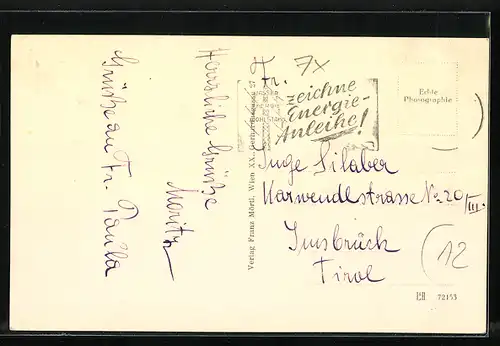 Herzliche Grüße
Moritz
Grüße an Fr. Paula
Verlag Franz Mörtl, Wien XX.
7x
zeichne
Energie-
Anleihe!
Echte
Photographie
Fr.
Inge Silaber
Karwendlstrasse No 20/III.
Innsbrück
Tirol
12
72153